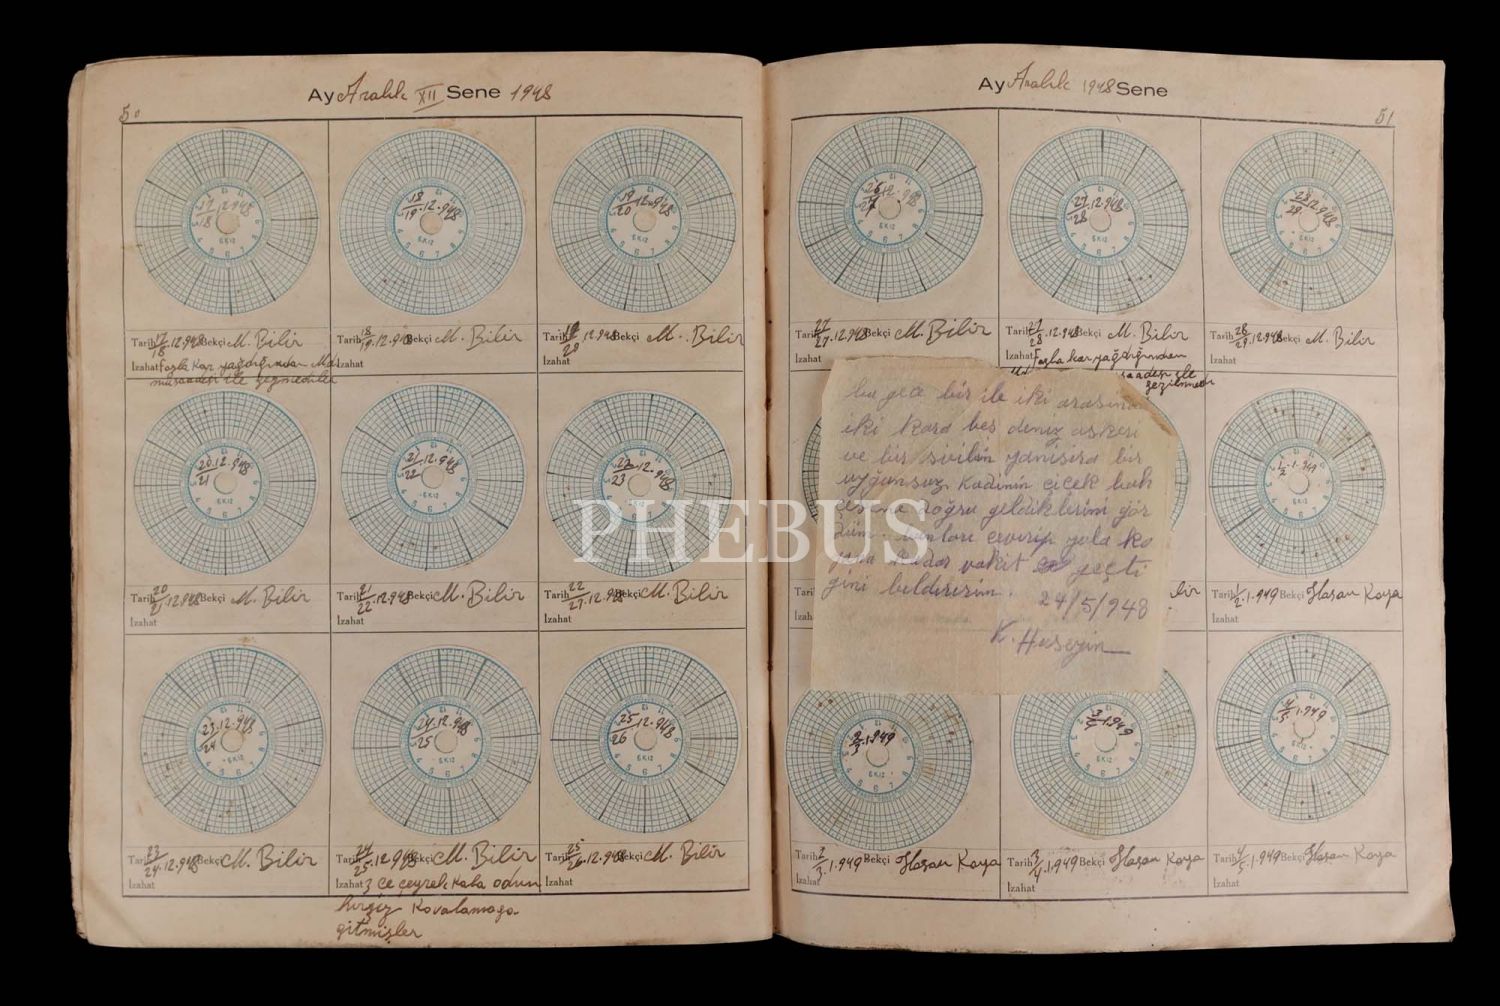 Ay Aralık XII Sene 1948
50
17/18 12.948
18/19.12.948
19/20 12.948
Tarih 17/18.12.948 Bekçi M. Bilir
İzahat Fazla kar yağdığından
müsaadesi ile
Tarih 18/19.12.948 Bekçi M. Bilir
İzahat
Tarih 19/20 12.948 Bekçi M. Bilir
İzahat
20/21 12.948
21/22 12.948
22/23 12.948
Tarih 20/21.12.948 Bekçi M. Bilir
İzahat
Tarih 21/22.12.948 Bekçi M. Bilir
İzahat
Tarih 22/27.12.948 Bekçi M. Bilir
İzahat
23/24 12.948
24/25 12.948
25/26 12.948
Tarih 23/24.12.948 Bekçi M. Bilir
İzahat
Tarih 24/25.12.948 Bekçi M. Bilir
İzahat 3 çe çeyrek kala odun
hırsız kovalamağa
gitmişler
Tarih 25/26.12.948 Bekçi M. Bilir
İzahat
Ay Aralık 1948 Sene
51
26/27 12.948
27/28 12.948
28/29 12.948
Tarih 27/27.12.948 Bekçi M. Bilir
İzahat
Tarih 27/28.12.948 Bekçi M. Bilir
İzahat Fazla kar yağdığından
saadesi ile
gezilmedi
Tarih 28/29.12.948 Bekçi M. Bilir
İzahat
bu gece bir ile iki arasında
iki kara beş deniz askeri
ve bir sivilin yanısıra bir
uygunsuz kadının çiçek bah
çesine doğru geldiklerini gör
düm bunları çevirip yola ko
yana kadar vakit geçti
ğini bildiririm. 24/5/948
K. Huseyin
1/2.1.949
Tarih
İzahat
lir
Tarih 1/2.1.949 Bekçi Hasan Kaya
İzahat
2/3.1.949
3/4.1.949
4/5.1.949
Tarih 2/3.1.949 Bekçi Hasan Kaya
İzahat
Tarih 3/4.1.949 Bekçi Hasan Kaya
İzahat
Tarih 4/5.1.949 Bekçi Hasan Kaya
İzahat
PHEBUS